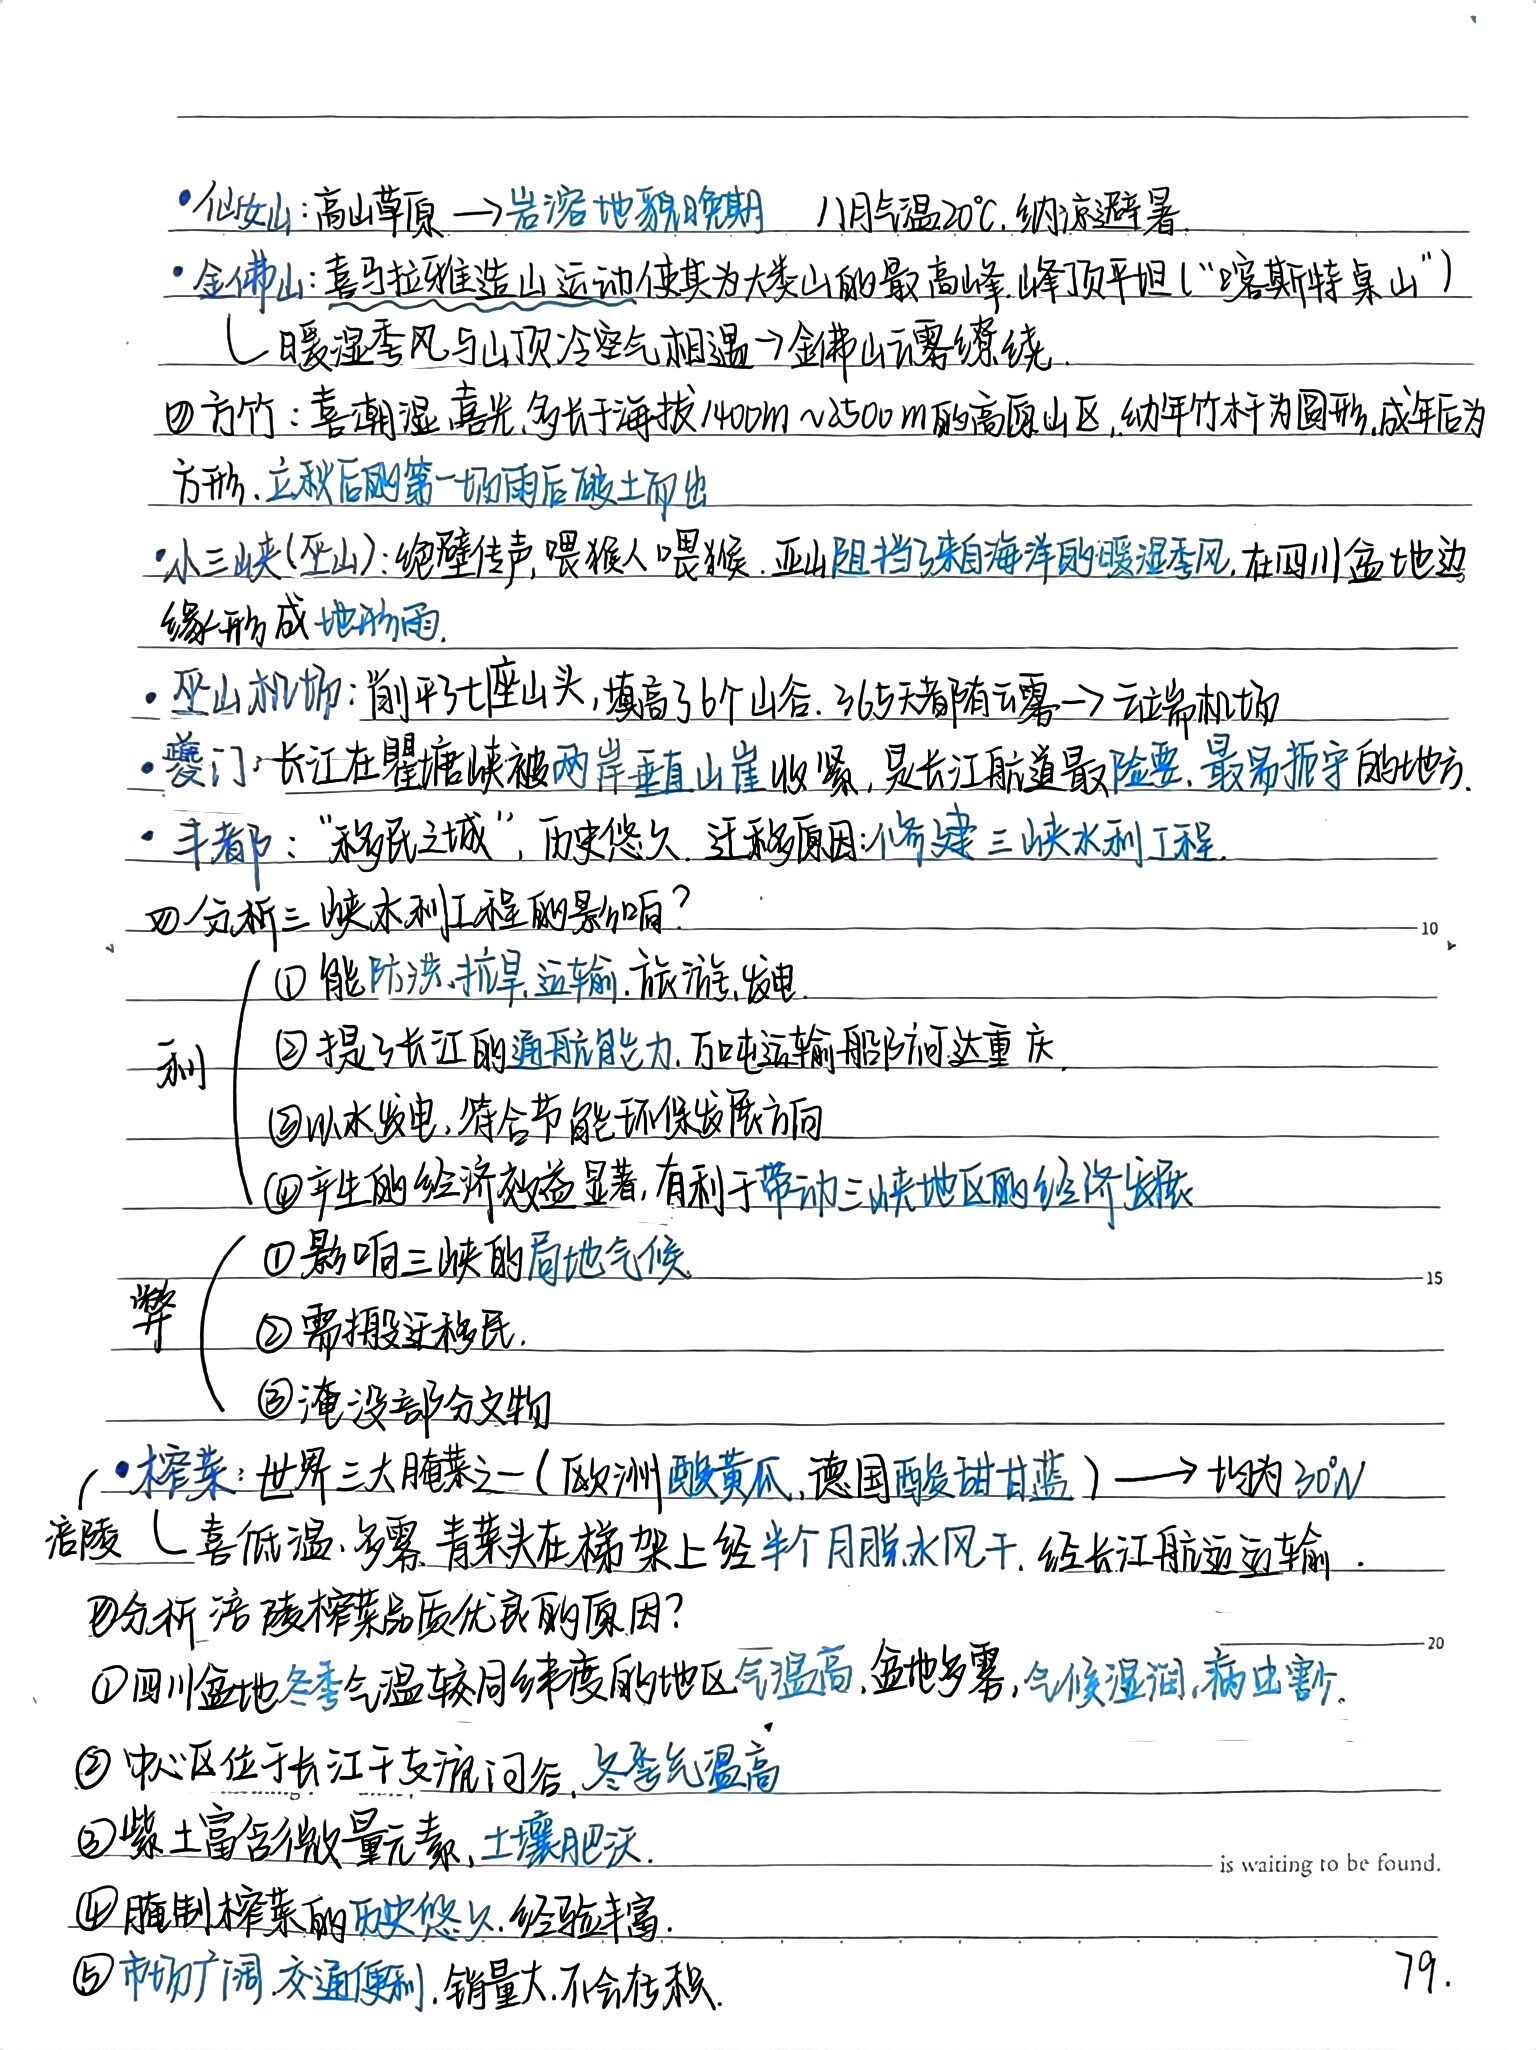 •仙女山：高山草原→岩溶地貌晚期 八月气温20℃.纳凉避暑.
•金佛山：喜马拉雅造山运动使其为大娄山的最高峰.峰顶平坦("喀斯特桌山")
暖湿季风与山顶冷空气相遇→金佛山云雾缭绕.
方竹：喜潮湿.喜光.多长于海拔1400m~2500m的高原山区，幼年竹杆为圆形.成年后为
方形、立秋后的第一场雨后破土而出
•小三峡(巫山)：绝壁传声，喂猴人喂猴.巫山阻挡了来自海洋的暖湿季风.在四川盆地边
缘形成地形雨.
•巫山机场：削平了七座山头，填高了6个山谷.365天都有云雾→云端机场
•夔门：长江在瞿塘峡被两岸垂直山崖收紧，是长江航道最险要、最易扼守的地方.
•丰都："移民之城"，历史悠久.迁移原因：修建三峡水利工程.
分析三峡水利工程的影响？
10
①能防洪、抗旱、运输、旅游、发电.
利
②提了长江的通航能力.万吨运输船队可达重庆.
③以水发电、符合节能环保发展方向
④产生的经济效益显著，有利于带动三峡地区的经济发展
①影响三峡的局地气候.
15
弊
②需搬迁移民.
③淹没部分文物
•榨菜：世界三大腌菜之一(欧洲酸黄瓜、德国酸甜甘蓝)→均为30°N
涪陵
喜低温、多雾.青菜头在梯架上经半个月脱水风干.经长江航运运输.
分析涪陵榨菜品质优良的原因？
20
①四川盆地冬季气温较同纬度的地区气温高.盆地多雾，气候湿润、病虫害少.
②中心区位于长江干支流河谷、冬季气温高
③紫土富含微量元素，土壤肥沃.
is waiting to be found.
④腌制榨菜的历史悠久.经验丰富.
⑤市场广阔.交通便利.销量大.不会存积.
79.